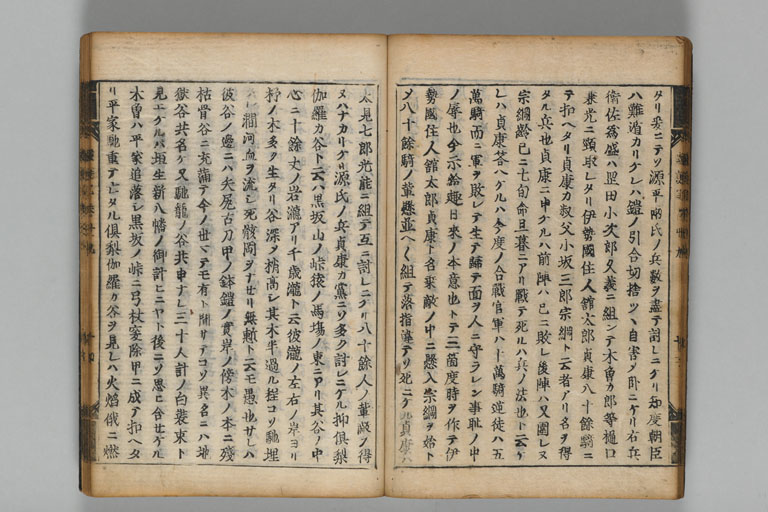 タリ爰ニテソ源平両氏ノ兵数ヲ盡テ討レニケリ知度朝臣
ハ難遁カリケレハ鎧ノ引合切捨ツヽ自害ヲ卧ニケリ右兵
衛佐為盛ハ岡田小次郎久義ニ組ンテ木曽カ郎等樋口
兼光ニ頸取レタリ伊勢國住人舘太郎貞康八十餘騎ニ
テ扣ヘタリ貞康カ叔父小坂三郎宗綱ト云者アリ名ヲ得
タル兵也貞康ニ申ケルハ前陣ハ已ニ敗レ後陣ハ又圍レヌ
宗綱齢已ニ七旬命旦暮ニアリ戰テ死ルハ兵ノ法也ト云ケ
レハ貞康荅ヘケルハ今度ノ合戰官軍ハ十萬騎逆徒ハ五
萬騎而ニ軍ヲ敗レテ生テ歸テ面ヲ人ニ守ラレン事恥ノ中
ノ辱也今示給趣日來ノ本意也トテ三箇度時ヲ作テ伊
勢國住人舘太郎貞康ト名乗敵ノ中ニ懸入宗綱ヲ始ト
メ八十餘騎ノ輩懸並ヘ〱組テ落指違テソ死ニケル貞康ハ
太見七郎光能ニ組テ互ニ討レニケリ八十餘人ノ輩敵ノ得
ヌハナカリケリ源氏ノ兵貞康カ黨ニソ多ク討レニケル抑倶梨
伽羅カ谷ト云ハ黒坂山ノ峠猿ノ馬塲ノ東ニアリ其谷ノ中
心ニ十餘丈ノ岩瀧アリ千歳瀧ト云彼瀧ノ左右ノ岸ヨリ
杼ノ木多ク生タリ谷深ク梢高シ其木半過ル程コソ馳埋
ケレ澗河血ヲ流シ死骸岡ヲナセリ無慙ト云モ愚也サレハ
彼谷ノ邊ニハ矢尻古刀甲ノ鉢鎧ノ實岸ノ傍木ノ本ニ殘
枯骨谷ニ充満テ今ノ世マテモ有ト聞サテコソ異名ニハ地
獄谷共名ケ又馳籠ノ谷共申ナレ三十人計ノ白裝束ト
見エケルハ垣生新八幡ノ御計ヒニヤト後ニソ思ヒ合セケル
木曽ハ平家追落シ黒坂ノ峠ニ弓杖突除甲ニ成テ扣ヘタ
リ平家馳重テ亡タル倶梨伽羅カ谷ヲ見レハ火焔俄ニ燃